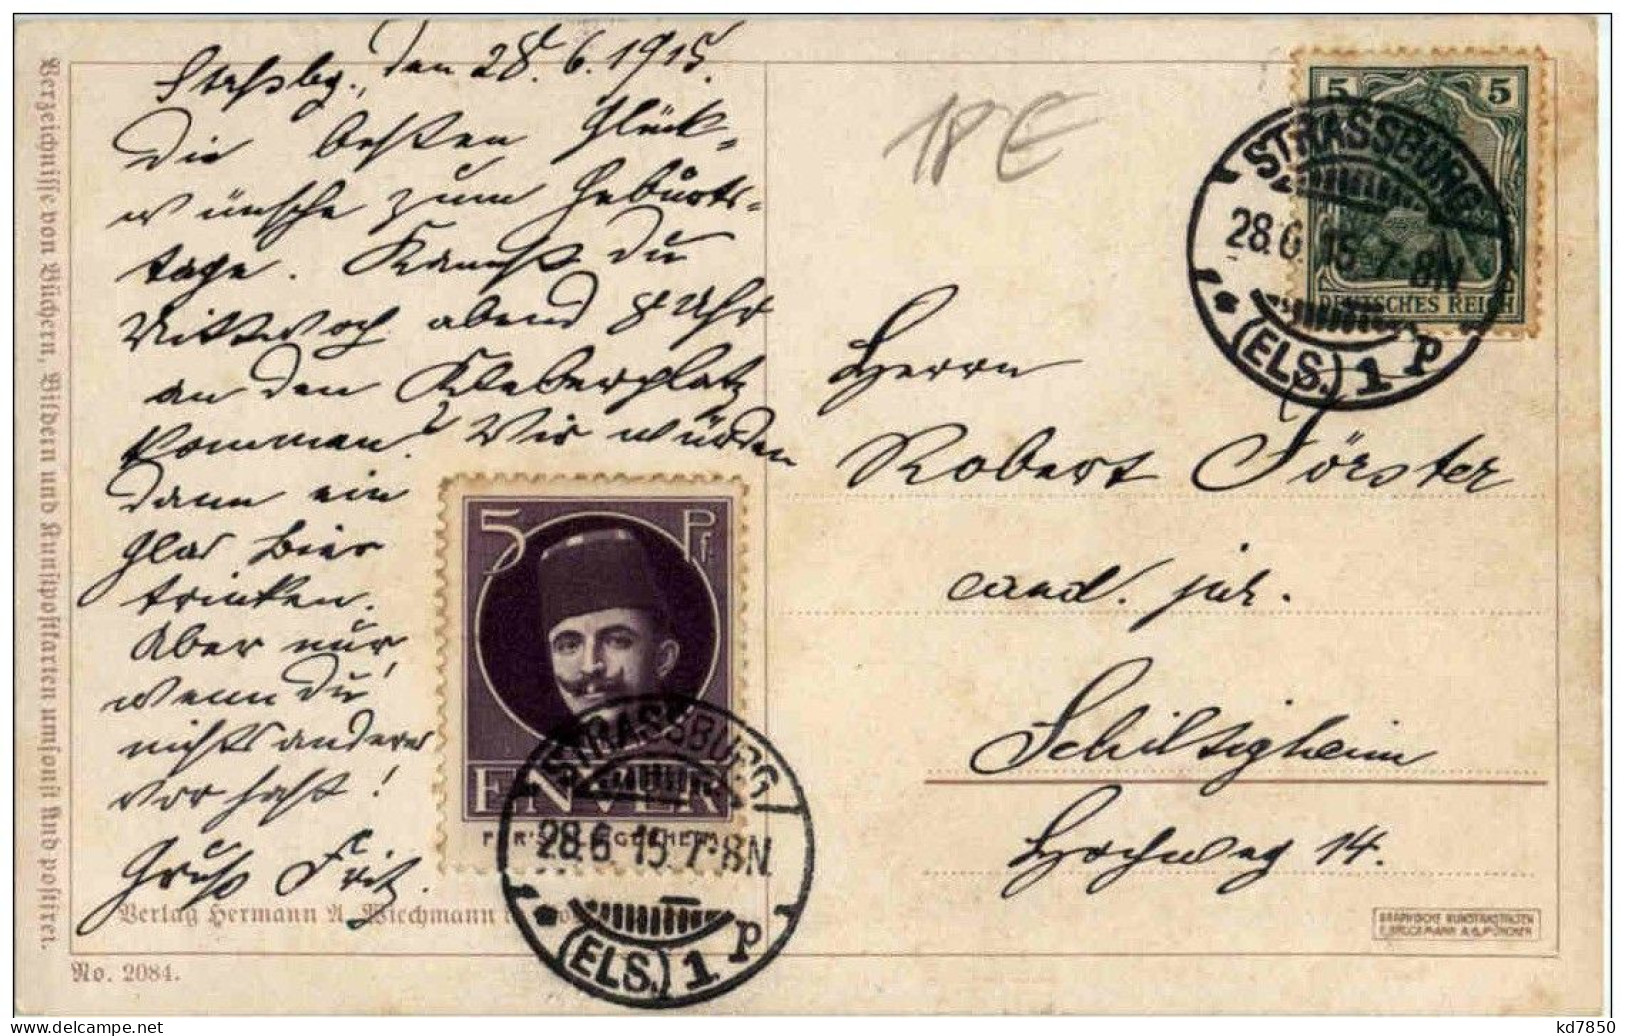 Verzeichnisse von Büchern, Bildern und Kunstpostkarten umsonst und postfrei.
Straßbg., den 28. 6. 1915.
Die besten Glück-
wünsche zum Geburts-
tage. Kannst Du
Mittwoch abend 8 Uhr
an den Kleberplatz
kommen? Wir würden
dann ein
Glas Bier
trinken.
Aber nur
wenn Du
nichts anderes
vor hast!
Gruß Fritz.
18 €
5 5
DEUTSCHES REICH
STRASSBURG
28.6.15.7-8N
(ELS.) 1 P
Herrn
Robert Förster
cand. jur.
Schiltigheim
Hochweg 14.
5 Pf.
ENVER
STRASSBURG
28.6.15.7-8N
(ELS.) 1 P
Verlag Hermann A. Wiechmann
No. 2084.
GRAPHISCHE KUNSTANSTALTEN
F. BRUCKMANN A.G. MÜNCHEN
kd7850